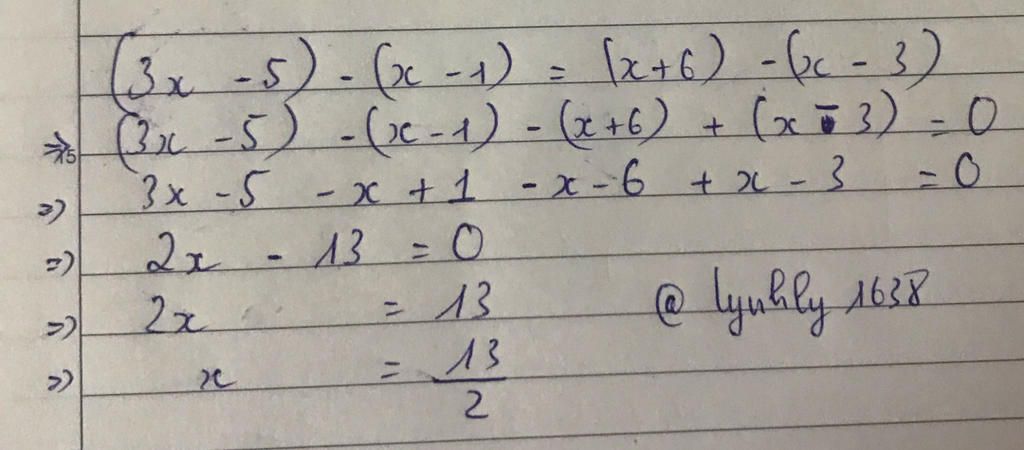 (3x - 5) - (x - 1) = (x + 6) - (x - 3)
=> (3x - 5) - (x - 1) - (x + 6) + (x - 3) = 0
=> 3x - 5 - x + 1 - x - 6 + x - 3 = 0
=> 2x - 13 = 0
=> 2x = 13 @ lyuhly 1638
=> x = 13/2